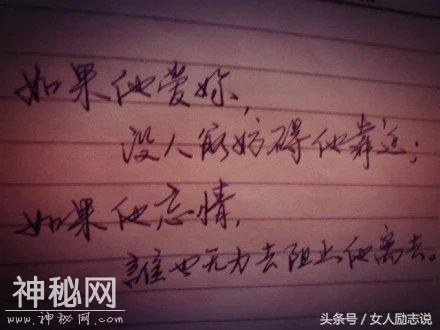 如果他爱妳，
没人能妨碍他靠近；
如果他忘情，
誰也无力去阻止他离去。
神秘网
www.神秘网.com
头条号／女人励志说